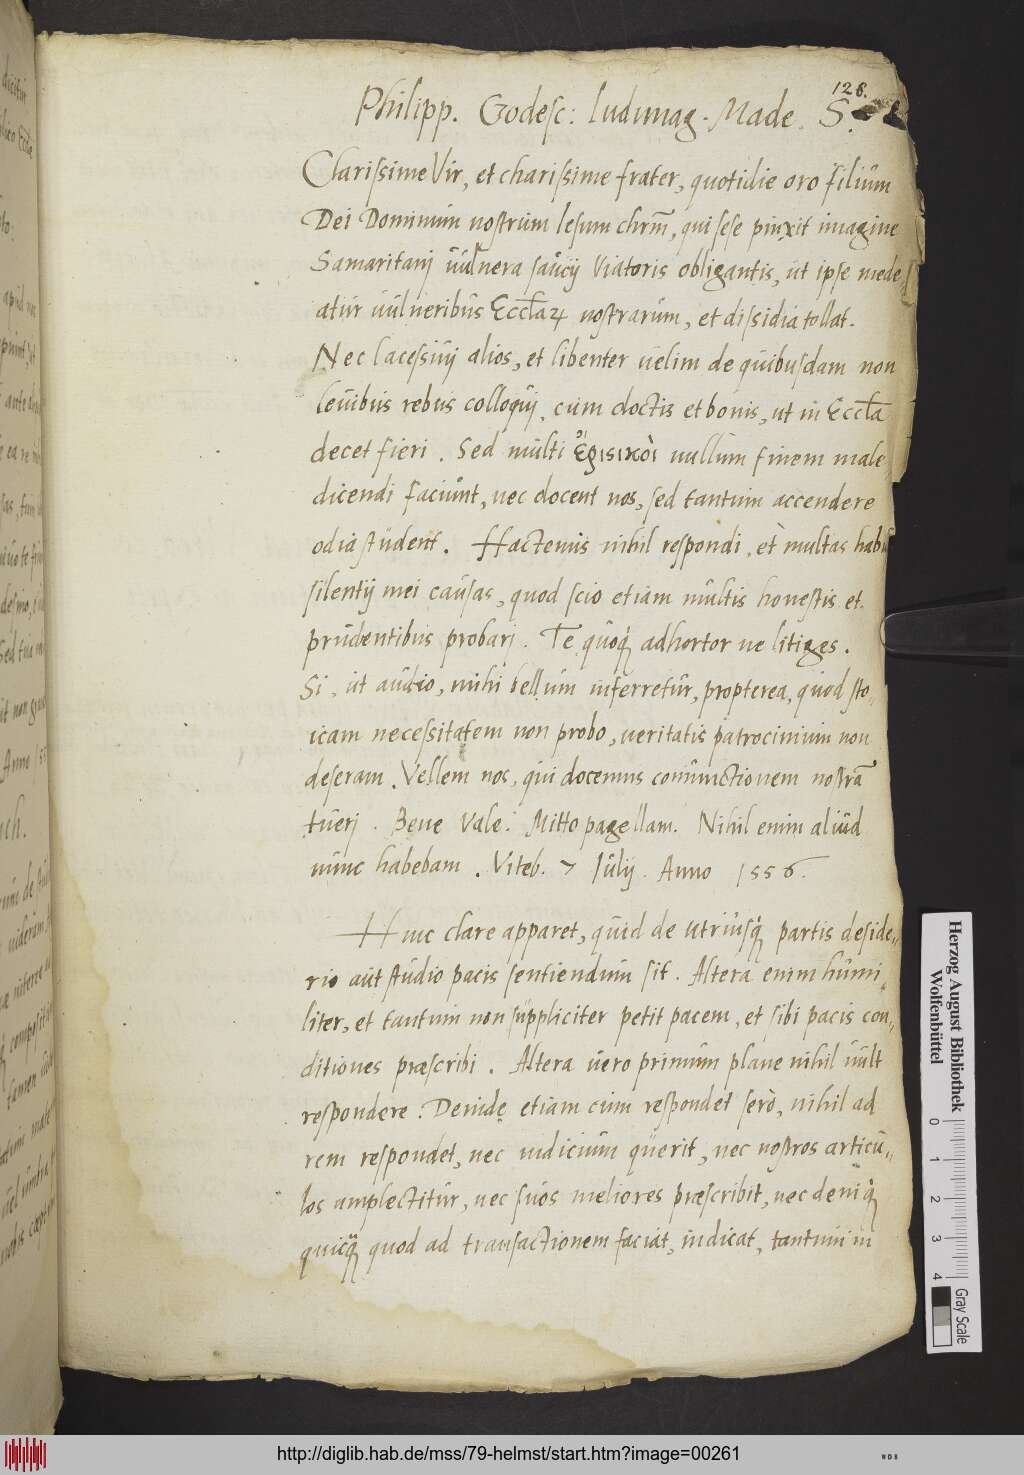 128.
Philipp. Godesc: ludimag. Made. S.
Clarissime Vir, et charissime frater, quotidie oro filium
Dei Dominum nostrum Iesum chrm̄, qui sese pinxit imagine
Samaritanj uulnera saucij Viatoris obligantis, ut ipse mede„
atur uulneribus Eccl̄aꝝ nostrarum, et dissidia tollat.
Nec lacessiuj alios, et libenter uelim de quibusdam non
leuibus rebus colloquj, cum doctis et bonis, ut in Eccl̄a
decet fieri. Sed multi nullum finem male
dicendi faciunt, nec docent nos, sed tantum accendere
odia student. Hactenus nihil respondi, et multas habui
silentij mei causas, quod scio etiam multis honestis et
prudentibus probarj. Te quoq̨ adhortor ne litiges.
Si, ut audio, mihi bellum inferretur, propterea, quod sto„
icam necessitatem non probo, ueritatis patrocinium non
deseram. Vellem nos, qui docemus coniunctionem nostrā
tuerj. Bene Vale. Mitto pagellam. Nihil enim aliud
nunc habebam. Viteb. 7 Iulij. Anno 1556.
Hinc clare apparet, quid de utriusq̨ partis deside„
rio aut studio pacis sentiendum sit. Altera enim humi„
liter, et tantum non suppliciter petit pacem, et sibi pacis con„
ditiones præscribi. Altera uero primum plane nihil uult
respondere. Deinde etiam cum respondet serò, nihil ad
rem respondet, nec iudicium quęrit, nec nostros articu„
los amplectitur, nec suos meliores præscribit, nec deniq̨
quicq̨ quod ad transactionem faciat, indicat, tantum in
Herzog August Bibliothek
Wolfenbüttel
0 1 2 3 4
Gray Scale
http://diglib.hab.de/mss/79-helmst/start.htm?image=00261